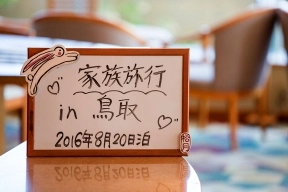 家族旅行
in 鳥取
2016年8月20日泊